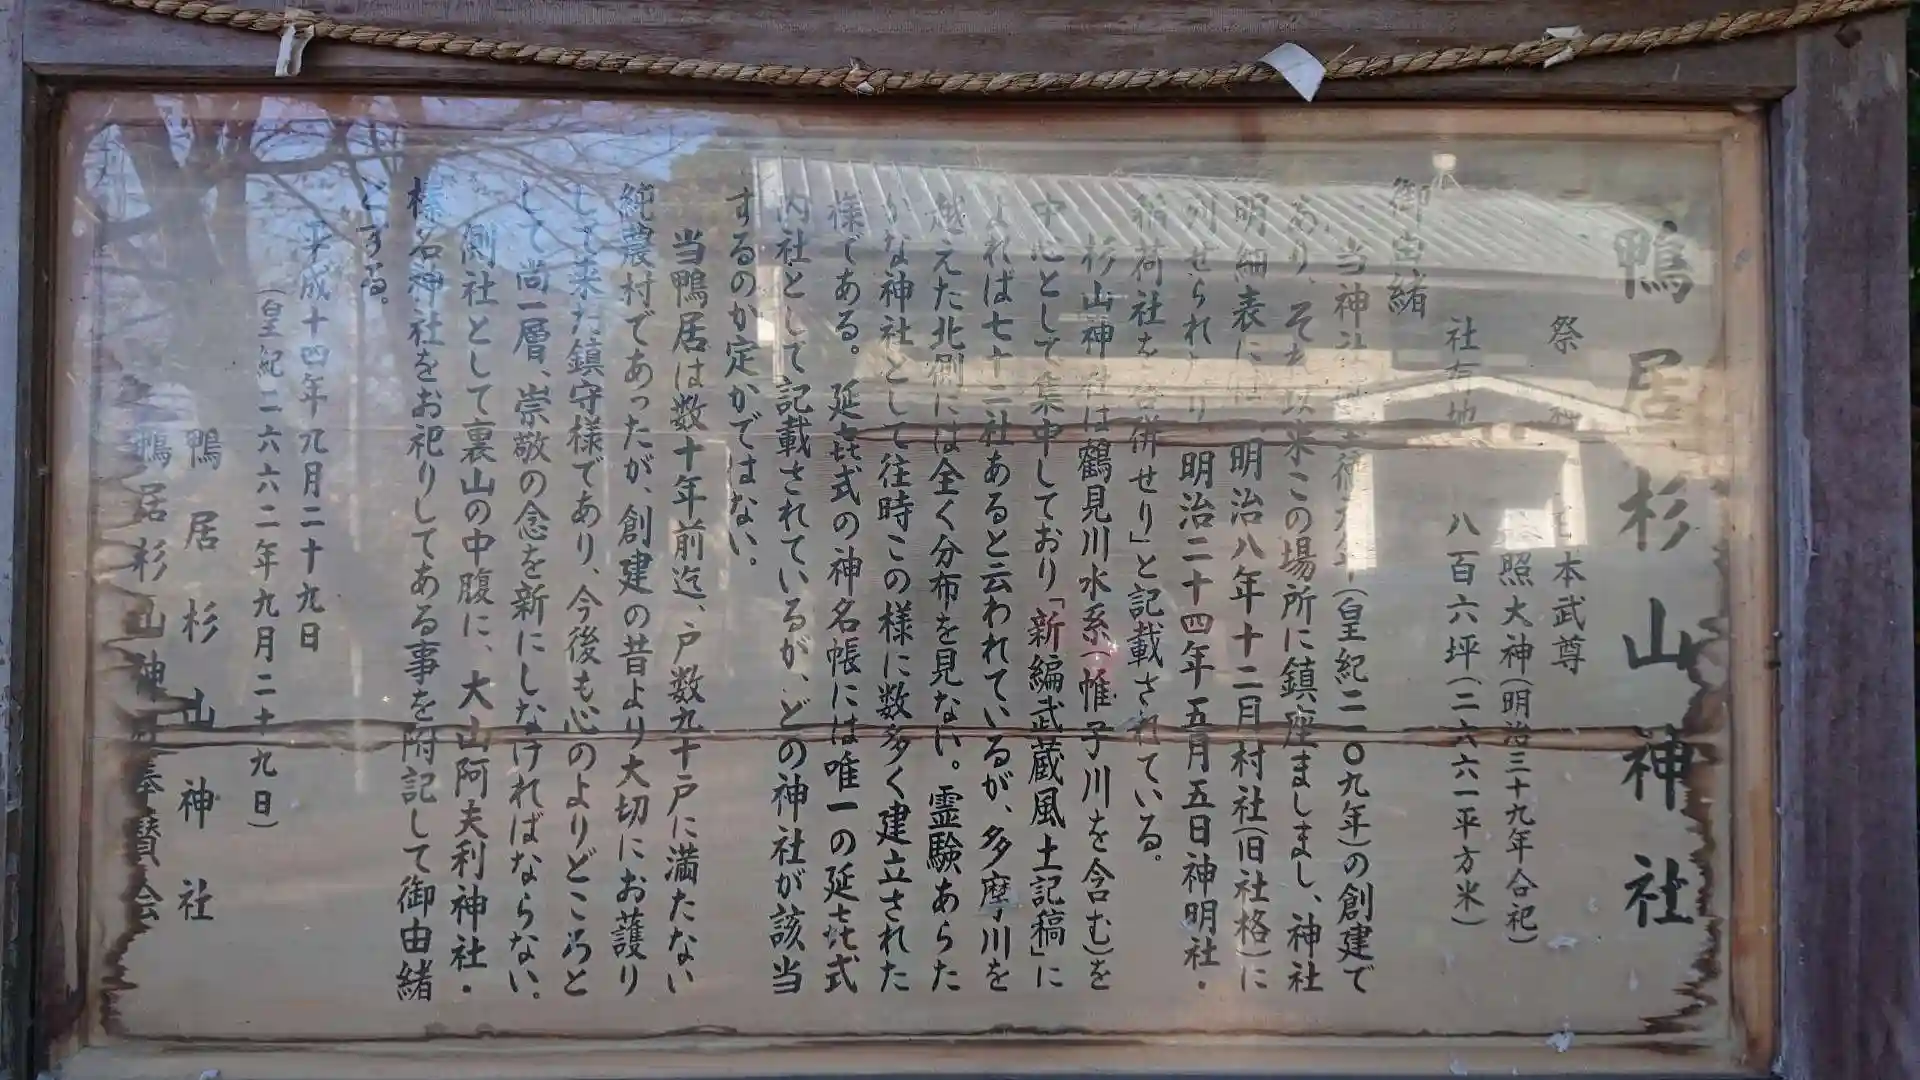 鴨居杉山神社
祭神 日本武尊
照大神(明治三十九年合祀)
社有地 八百六坪(二六六一平方米)
御由緒
当神社 年(皇紀二一〇九年)の創建で
あり、それ以来この場所に鎮座ましまし、神社
明細表に 明治八年十二月村社(旧社格)に
列せられたり 明治二十四年五月五日神明社・
稲荷社を合併せり」と記載されている。
杉山神社は鶴見川水系(帷子川を含む)を
中心として集中しており「新編武蔵風土記稿」に
よれば七十二社あると云われているが、多摩川を
越えた北側には全く分布を見ない。霊験あらた
かな神社として往時この様に数多く建立された
様である。延喜式の神名帳には唯一の延喜式
内社として記載されているが、どの神社が該当
するのか定かではない。
当鴨居は数十年前迄、戸数九十戸に満たない
純農村であったが、創建の昔より大切にお護り
して来た鎮守様であり、今後も心のよりどころと
して尚一層、崇敬の念を新にしなければならない。
側社として裏山の中腹に、大山阿夫利神社・
榛名神社をお祀りしてある事を附記して御由緒
とする。
平成十四年九月二十九日
(皇紀二六六二年九月二十九日)
鴨居杉山神社
鴨居杉山神社奉賛会